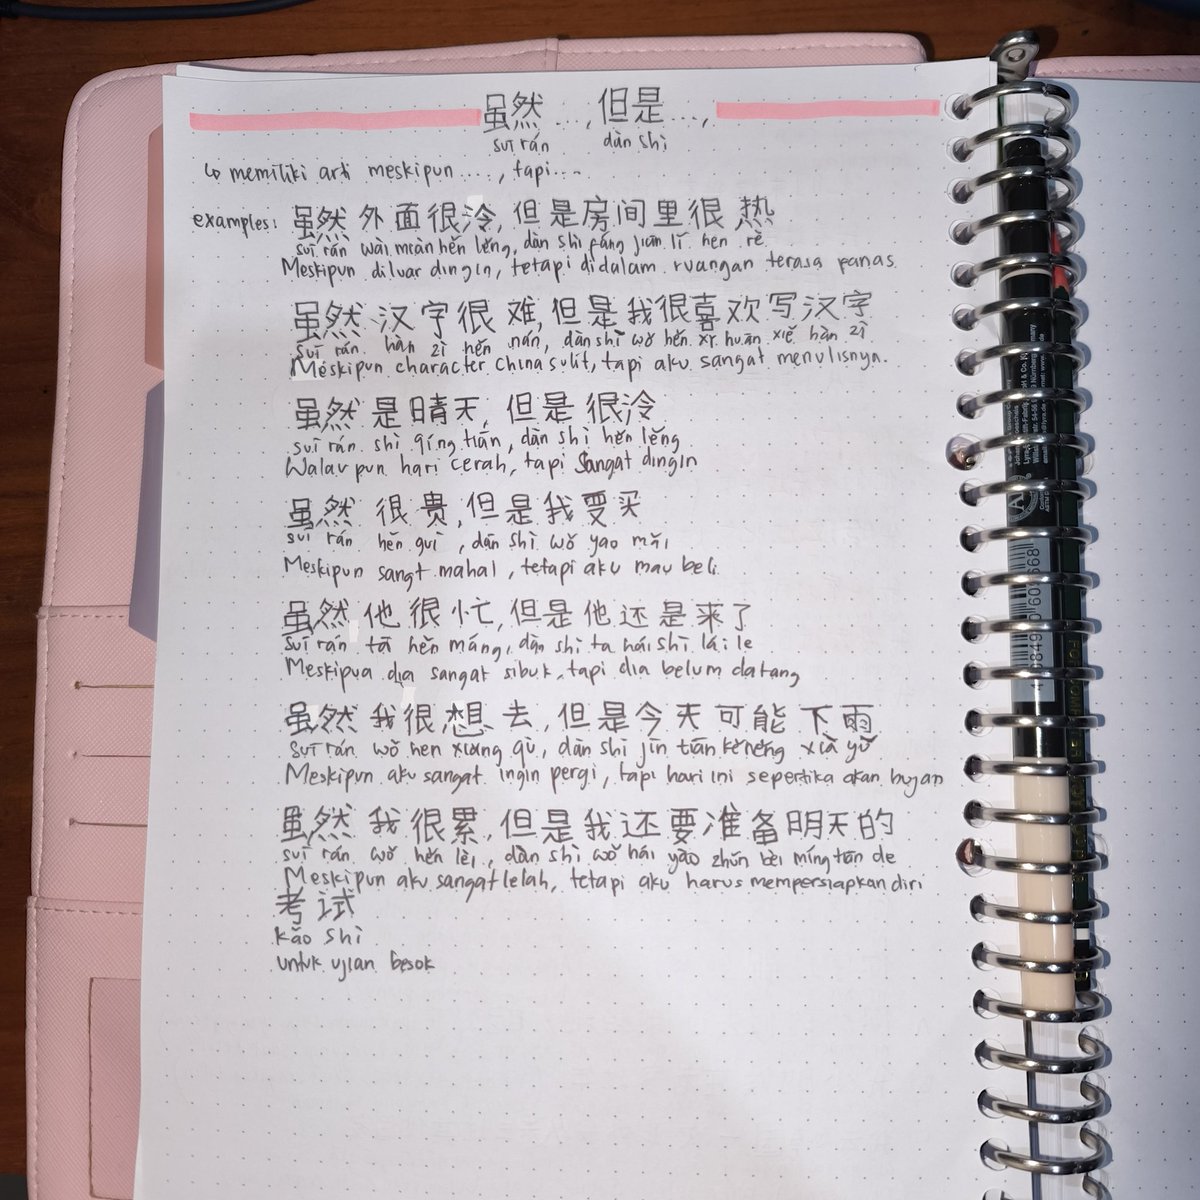 虽然...., 但是....,
suī rán dàn shì
↳ memiliki arti meskipun ...., tapi....
examples: 虽然外面很冷, 但是房间里很热
suī rán wài miàn hěn lěng, dàn shì fáng jiān lǐ hen rè
Meskipun diluar dingin, tetapi didalam ruangan terasa panas
虽然 汉字很 难, 但是我很喜欢写汉字
suī rán hàn zì hěn nán, dàn shì wǒ hěn xǐ huān xiě hàn zì
Meskipun character China sulit, tapi aku sangat menulisnya.
虽然 是晴天, 但是 很冷
suī rán shì qíng tiān, dàn shì hěn lěng
Walaupun hari cerah, tapi Sangat dingin
虽然 很贵, 但是我要买
suī rán hěn guì, dàn shì wǒ yao mǎi
Meskipun sangt mahal, tetapi aku mau beli
虽然 他很忙, 但是他还是来了
suī rán tā hěn máng, dàn shì ta hái shì lái le
Meskipun dia sangat sibuk, tapi dia belum datang
虽然 我很想去, 但是今天可能下雨
suī rán wǒ hen xiang qù, dàn shì jīn tiān kěnéng xià yǔ
Meskipun aku sangat ingin pergi, tapi hari ini sepertika akan hujan
虽然 我很累, 但是我还要准备明天的
suī rán wǒ hěn lèi, dàn shì wǒ hái yào zhǔn bèi míng tiān de
Meskipun aku sangat lelah, tetapi aku harus mempersiapkan diri
考试
kǎo shì
untuk ujian besok